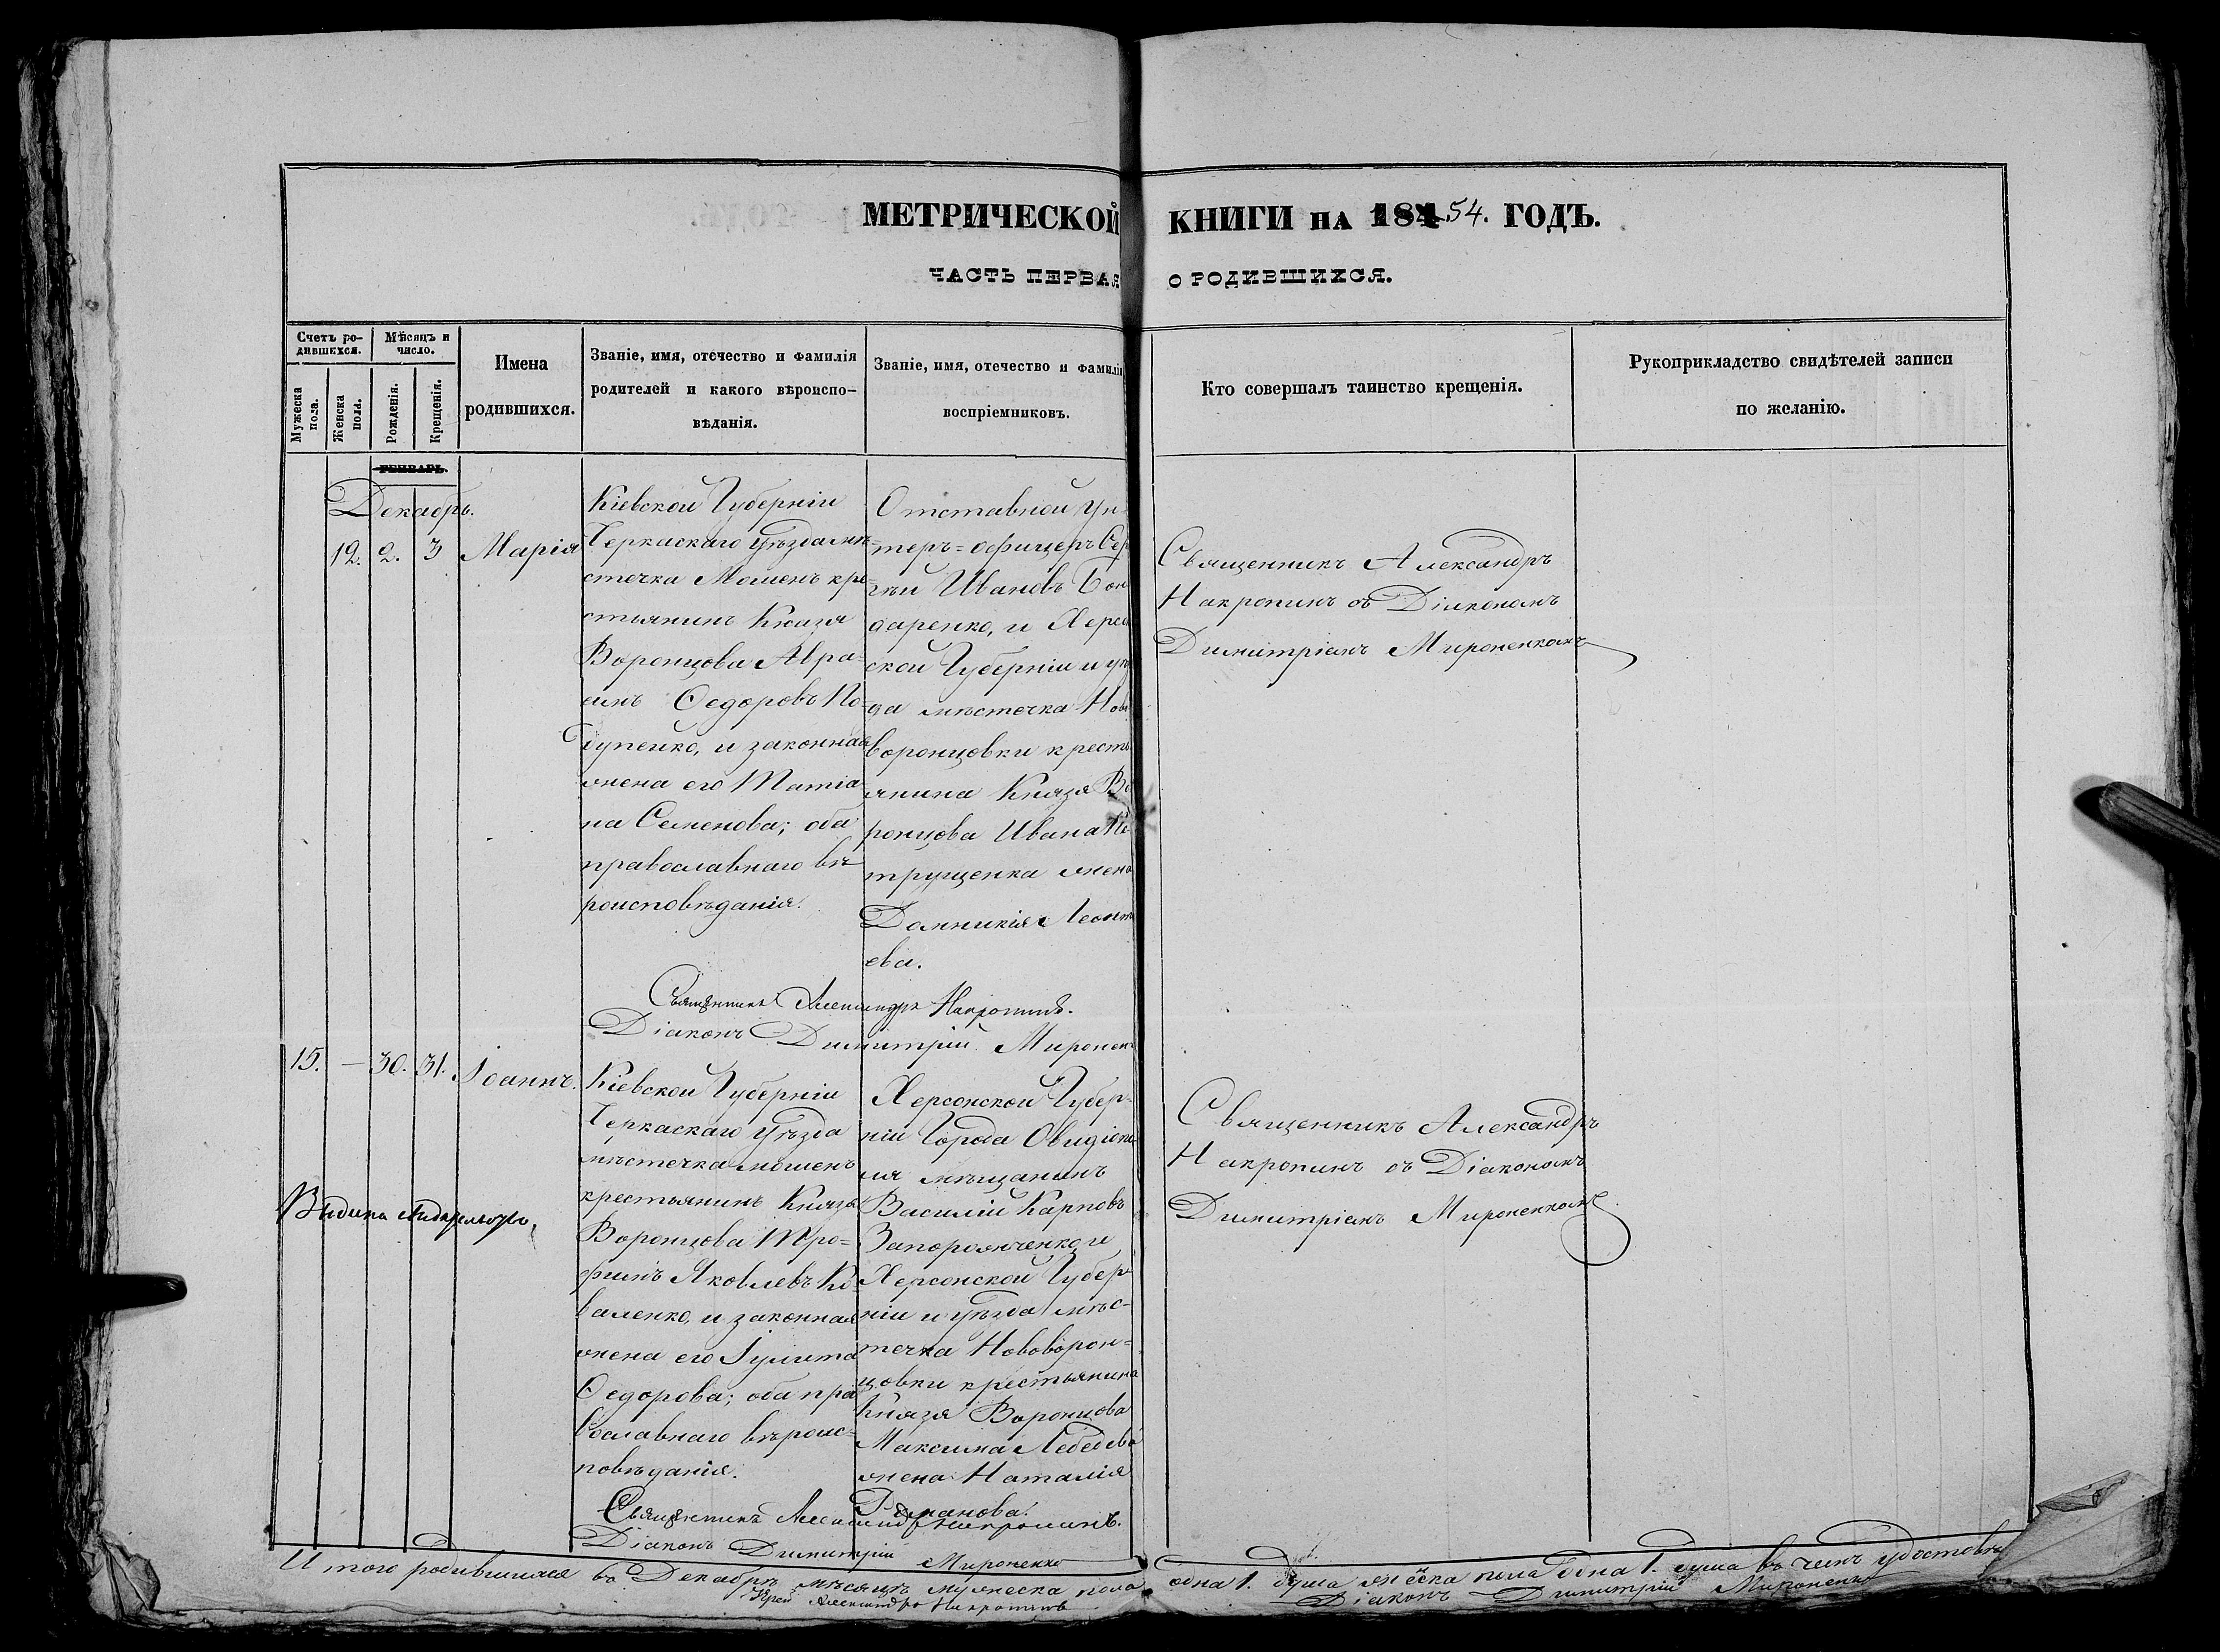 МЕТРИЧЕСКОЙ КНИГИ НА 184 54. ГОДЪ.
ЧАСТЬ ПЕРВАЯ О РОДИВШИХСЯ.
Счетъ ро-
дившихся.
Мужеска
пола.
Женска
пола.
Мѣсяцъ и
число.
Рожденія.
Крещенія.
Имена
родившихся.
Званіе, имя, отечество и фамилія
родителей и какого вѣроиспо-
вѣданія.
Званіе, имя, отечество и фамилія
воспріемниковъ.
Кто совершалъ таинство крещенія.
Рукоприкладство свидѣтелей записи
по желанію.
ЯНВАРЬ
Декабрь.
12. 2. 3 Марія
Кіевской Губерніи
Черкаскаго уѣзда мѣ-
стечка Мошенъ кре-
стьянинъ Князя
Воронцова
Ѳедоровъ
и законная
жена его Татіа
на Семенова; оба
православнаго вѣ
роисповѣданія.
Отставной Ун
теръ=офицеръ Сер
гѣй Ивановъ Бон
даренко, и Херсо
ской Губерніи и уѣз
да мѣстечка Ново
воронцовки кресть
янина Князя Во
ронцова Ивана Пе
трущенка жена
Домникія Леонть
ева.
Священникъ Александръ
Накропинъ съ Діакономъ
Димитріемъ Мироненкомъ
Священникъ Александръ Накропинъ.
Діаконъ Димитрій Мироненк
15. — 30. 31. Іоаннъ.
Выдано свидѣтельство,
Кіевской Губерніи
Черкаскаго Уѣзда
мѣстечка мошенъ
крестьянинъ Князя
Воронцова Тро=
фимъ Яковлевъ Ко-
валенко, и законная
жена его Іулита
Ѳедорова; оба пра
вославнаго вѣроис-
повѣданія.
Херсонской Губер-
ніи Города Овидіопо
ля мѣщанинъ
Василій Карповъ
Запорожченко, и
Херсонской Губер-
ніи и Уѣзда мѣс-
течка Нововорон=
цовки крестьянина
Князя Воронцова
Максима Лебедева
жена Наталія
Романова.
Священникъ Александръ
Накропинъ съ Діакономъ
Димитріемъ Мироненкомъ.
Священникъ Александръ Накропинъ.
Діаконъ Димитрій Мироненко
Итого родившихся въ Декабрѣ мѣсяцѣ мужеска пола одна 1. душа женска пола одна 1. душа въ чемъ удостовѣ
Іерей Александръ Накропинъ Діаконъ Димитрій Мироненко